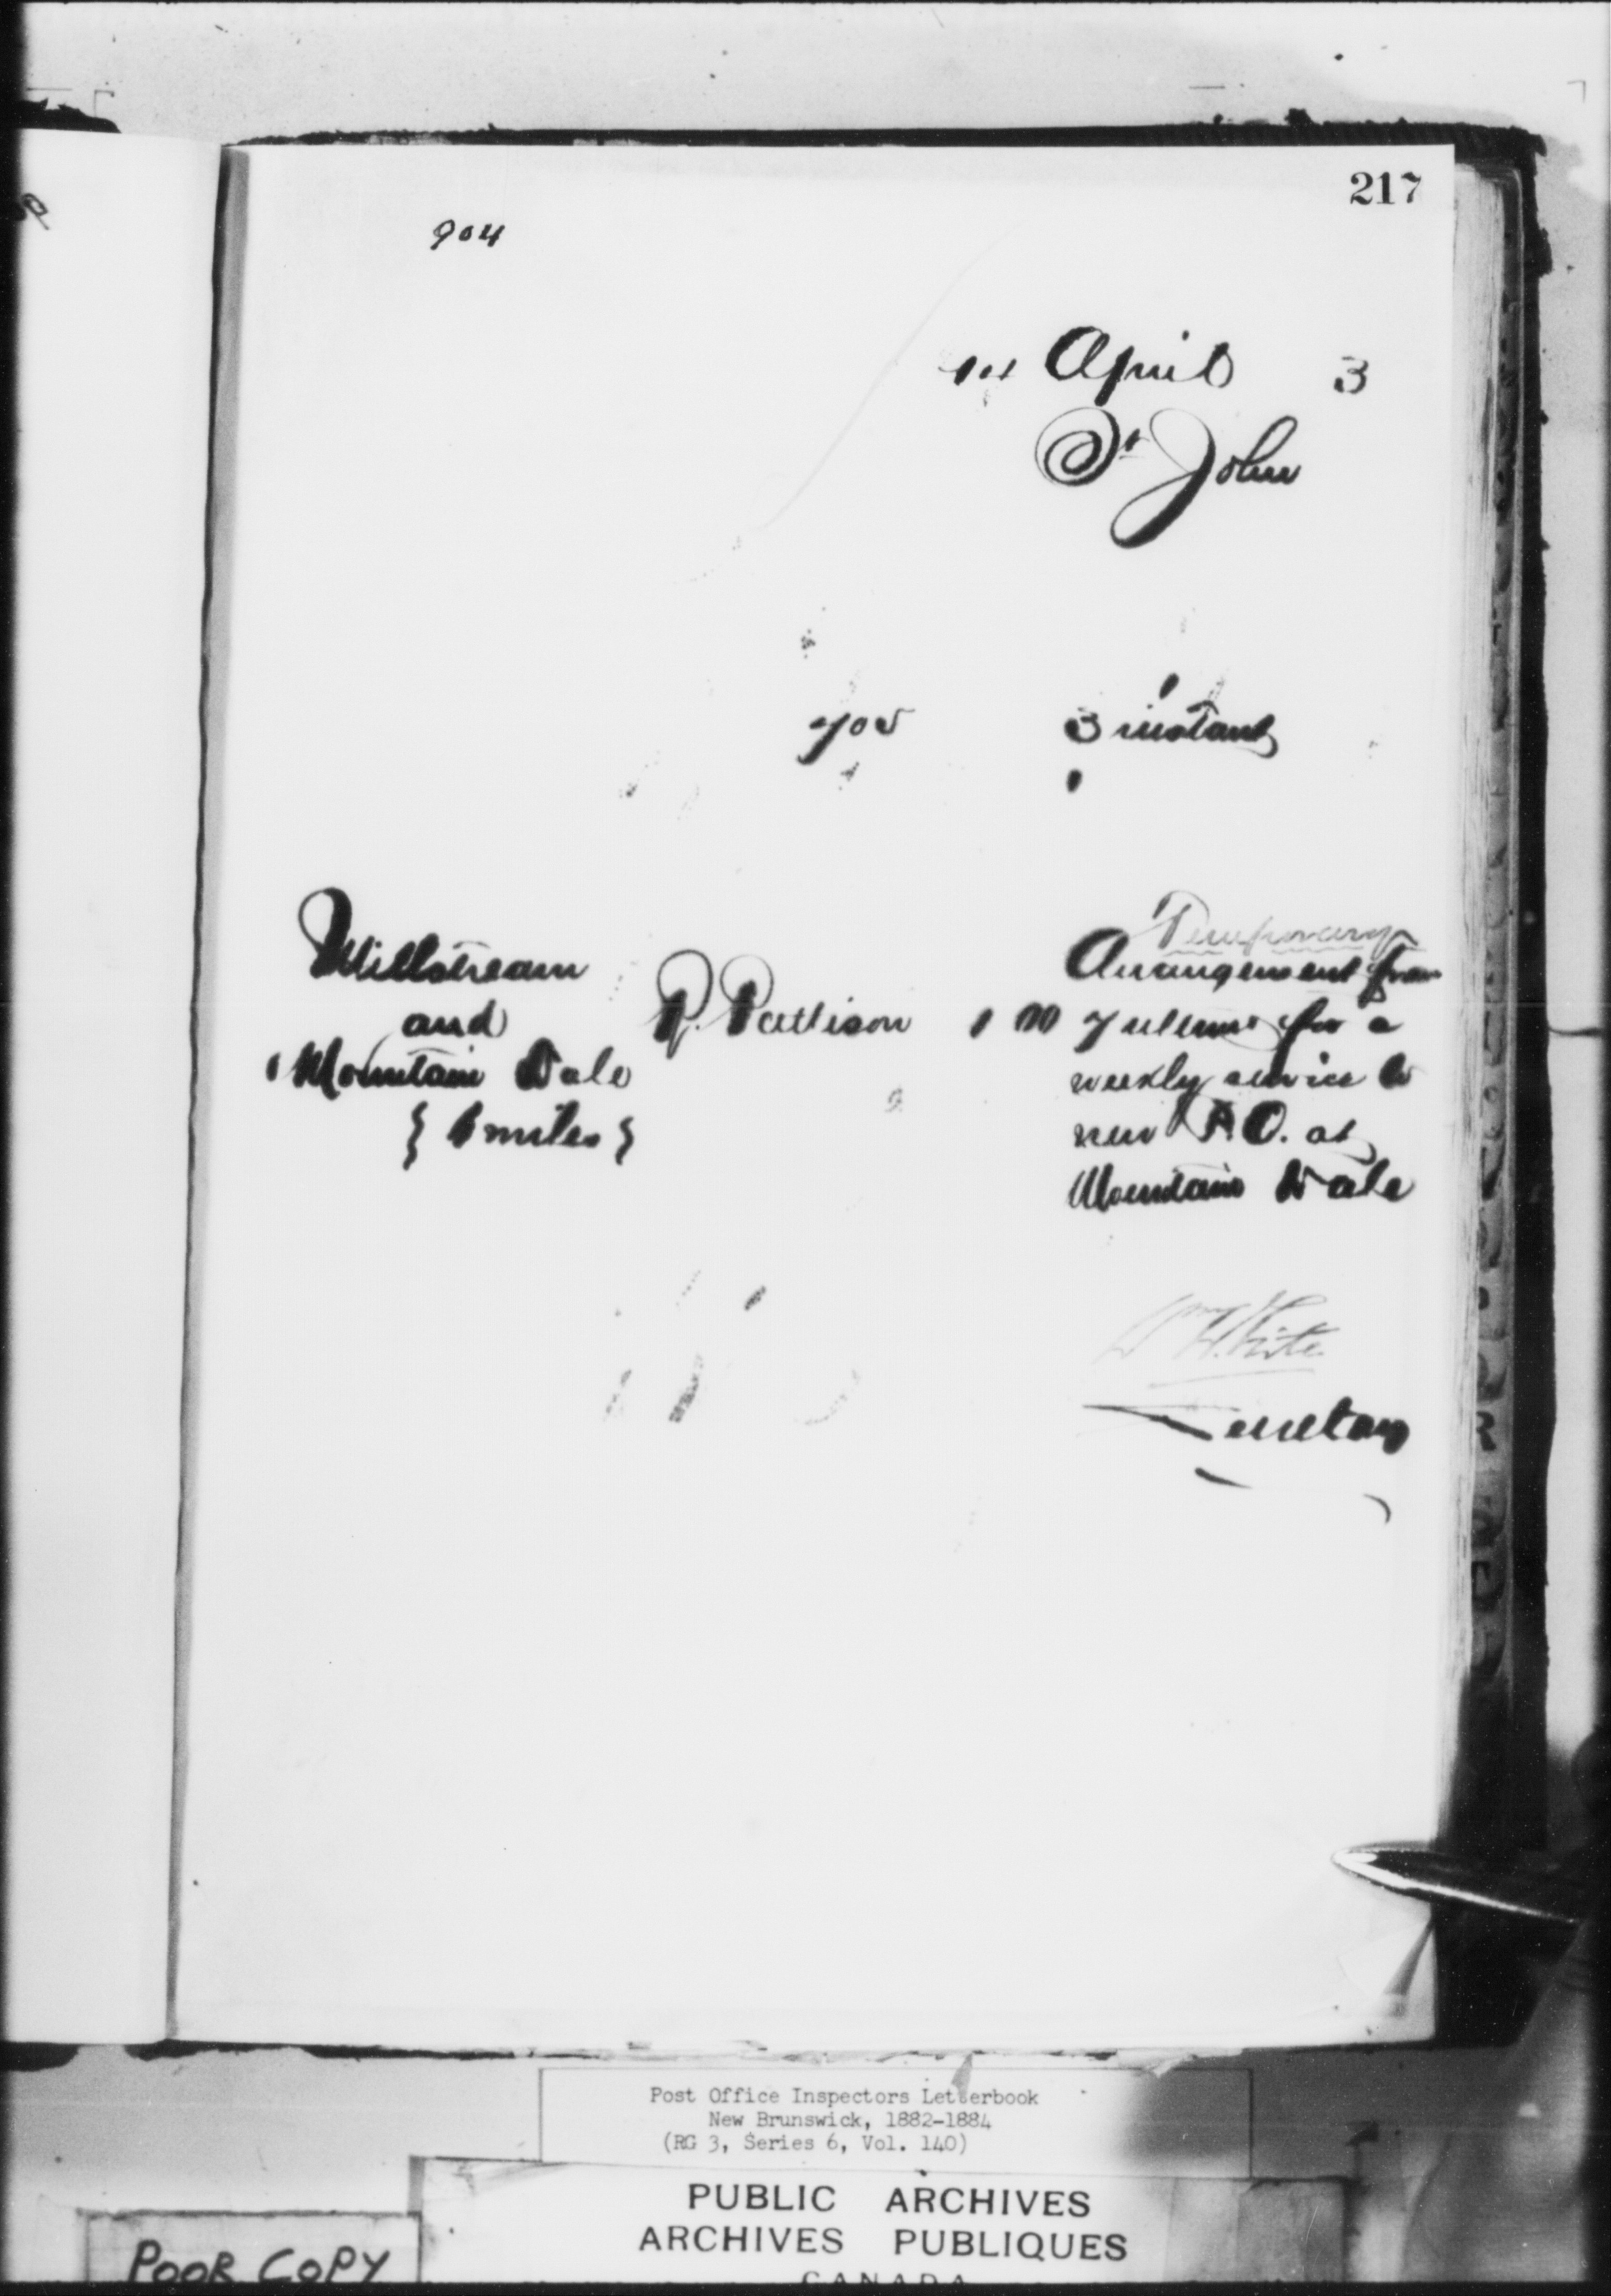 217
904
April 3
St John
705 3 instant
Temporary
Millstream Arrangement from
and R. Pattison 1 00 7 ultimo for a
Mountain Dale weekly service to
{ 6 miles } new P.O. at
Mountain Dale
Wm White
Secretary
Post Office Inspectors Letterbook
New Brunswick, 1882-1884
(RG 3, Series 6, Vol. 140)
PUBLIC ARCHIVES
ARCHIVES PUBLIQUES
CANADA
POOR COPY